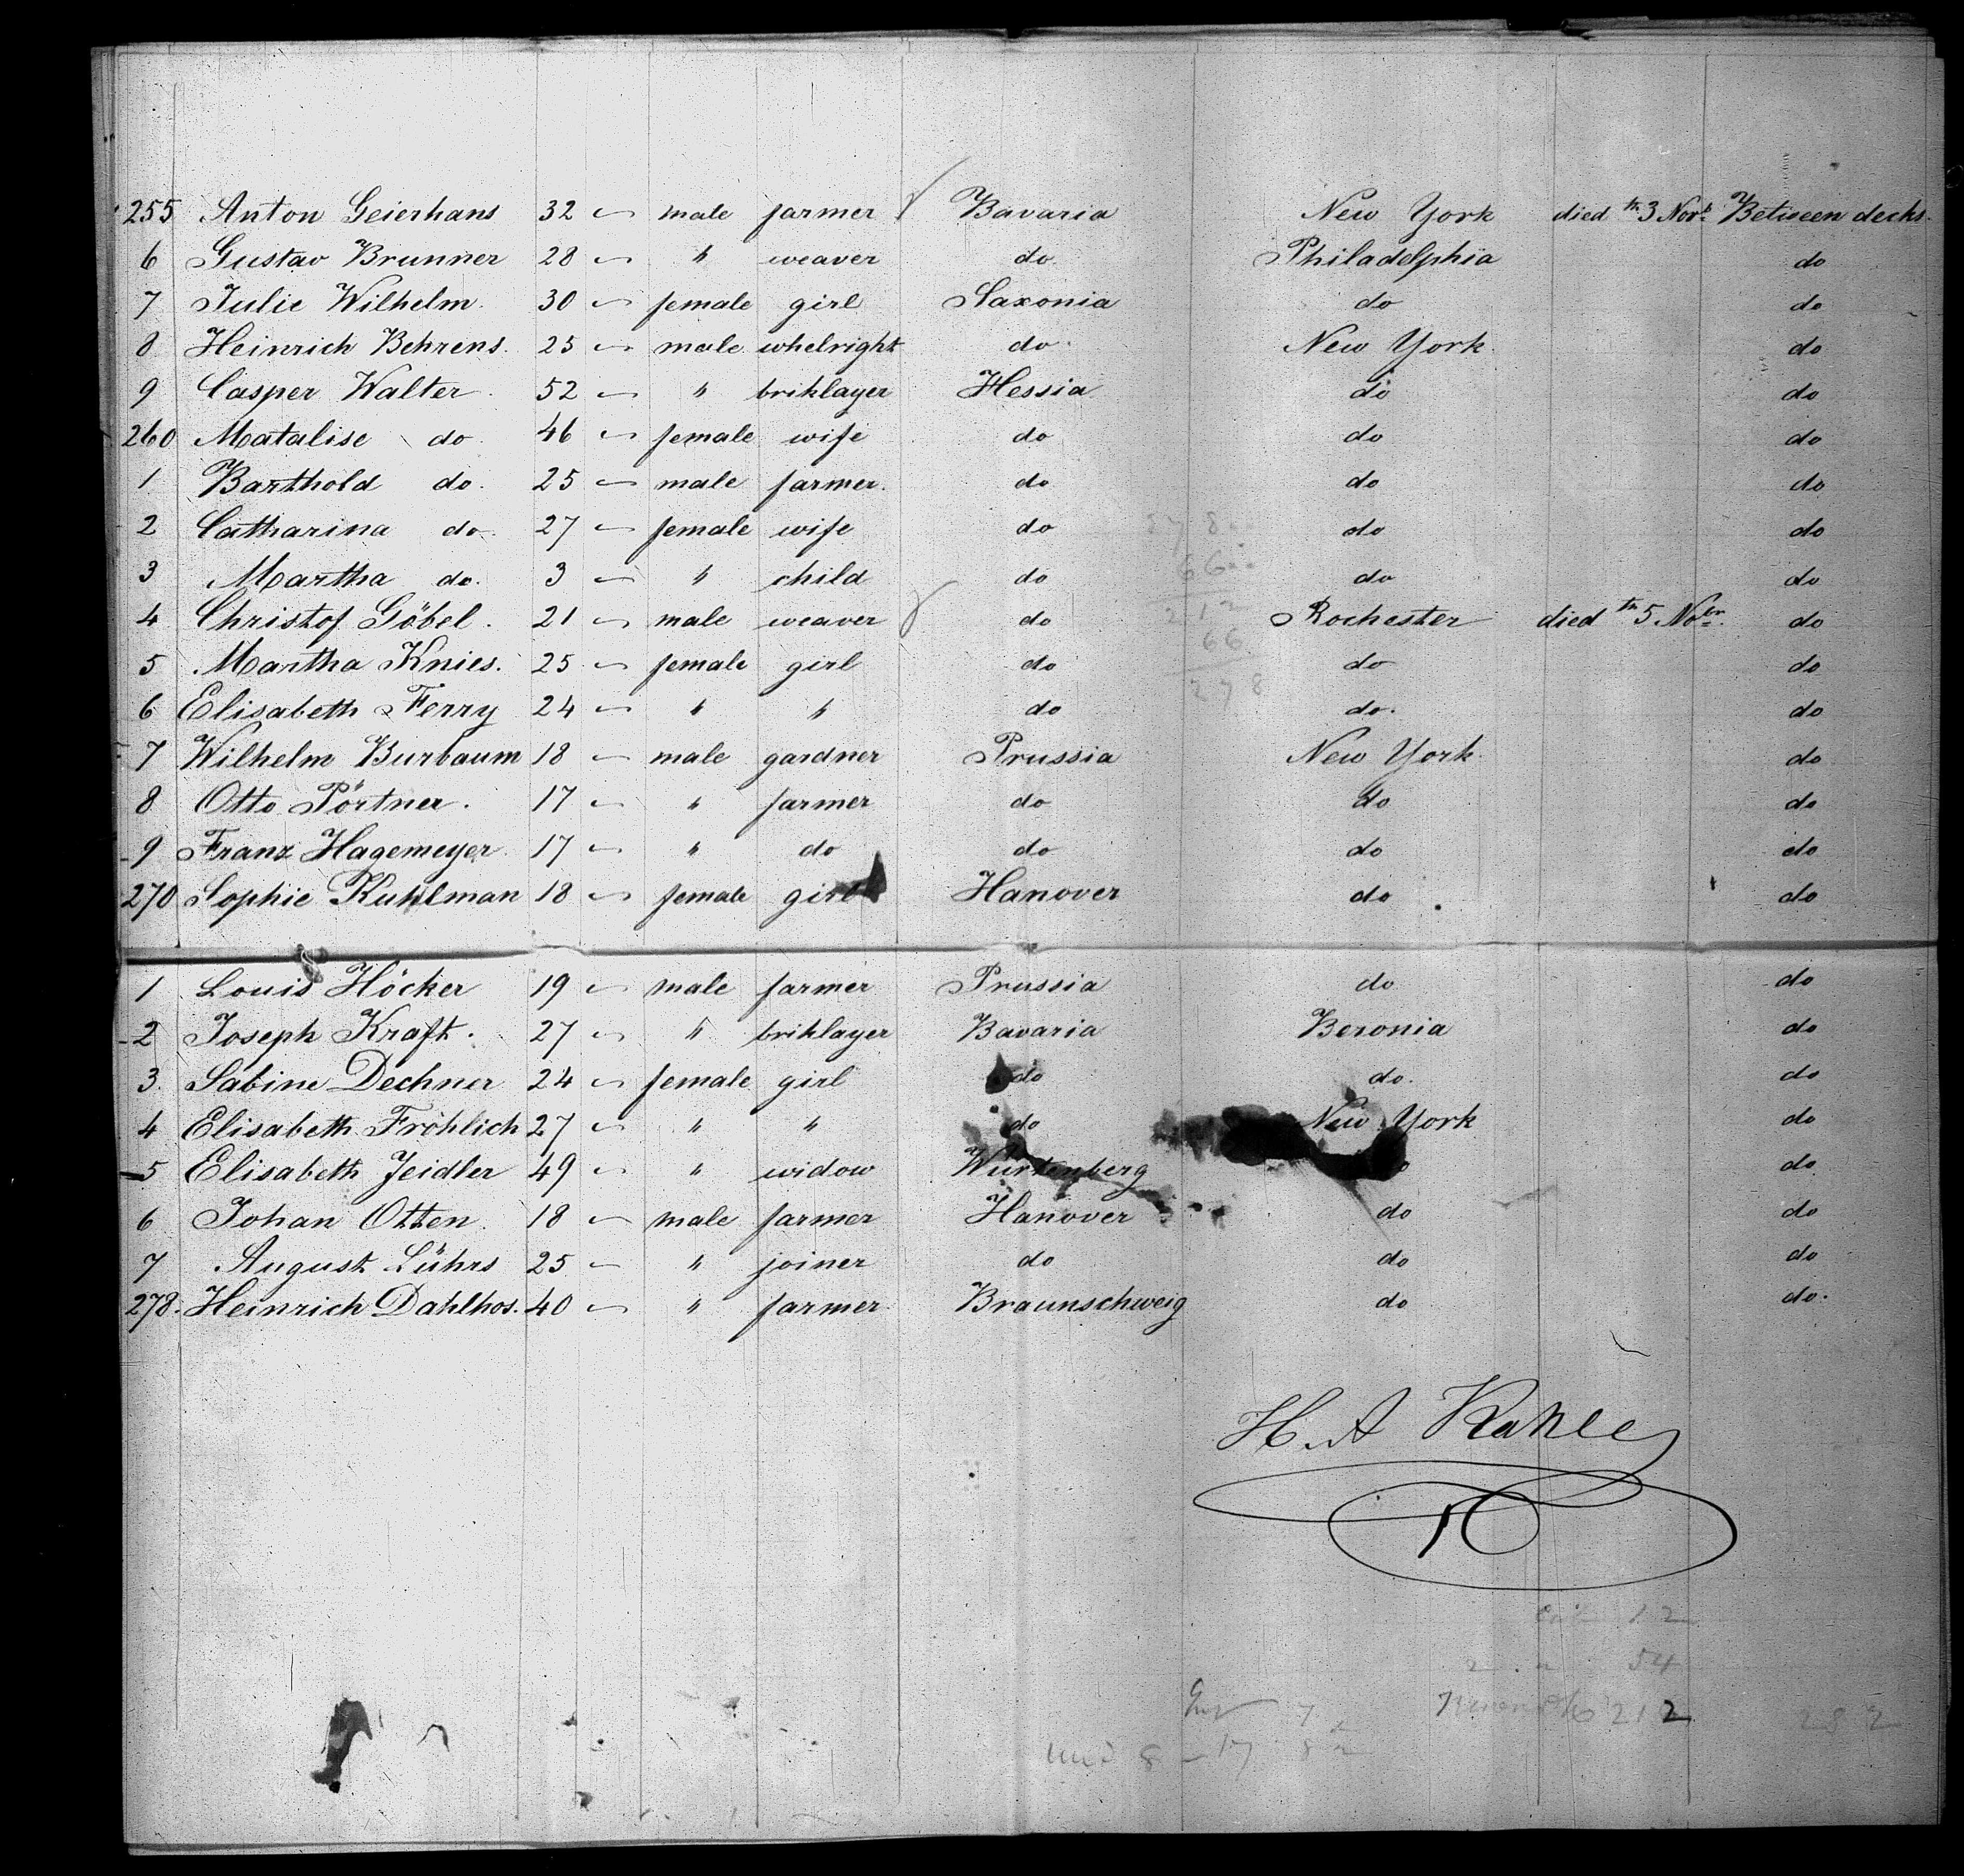 255 Anton Geierhans 32 male farmer Bavaria New York died th 3 Novb. Between decks.
6 Gustav Brunner 28 " weaver do. Philadelphia do
7 Julie Wilhelm. 30 female girl Saxonia do do
8 Heinrich Behrens. 25 male whelright do. New York. do
9 Casper Walter. 52 " briklayer Hessia do do
260 Matalise do. 46 female wife do do do
1 Barthold do. 25 male farmer. do do do
2 Catharina do. 27 female wife do do do
3 Martha do. 3 " child do do do
4 Christof Göbel. 21 male weaver do Rochester died th 5 Nobr. do
5 Martha Knies. 25 female girl do do do
6 Elisabeth Ferry 24 " " do do. do
7 Wilhelm Burbaum 18 male gardner Prussia New York. do
8 Otto Pörtner. 17 " farmer do do do
9 Franz Hagemeyer. 17 " do do do do
270 Sophie Kuhlman 18 female girl Hanover do do
1 Louis Höcker 19 male farmer Prussia do do
2 Joseph Kraft. 27 " briklayer Bavaria Beronia do
3. Sabine Dechner 24 female girl do do. do
4 Elisabeth Fröhlich 27 " " do New York do
5 Elisabeth Zeidler 49 " widow Würtenberg do
6 Johan Otten. 18 male farmer Hanover do do
7 August Lührs 25 " joiner do do do
278. Heinrich Dahlhos. 40 " farmer Braunschweig do do.
66
212
66
278
H. A Kahle
12
54
212